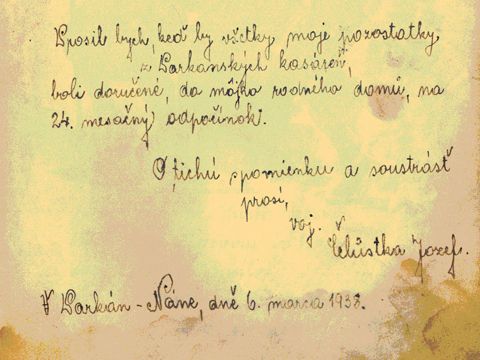 Uposil bych, keď by všetky moje pozostatky
z Parkanských kasáreň,
boli doručené, do môjho rodného domů, na
24. mesačný odpočinok.
O tichú spomienku a soustrásť
prosí,
voj.
Čelůstka Jozef.
V Parkán - Náne, dně 6. marca 1938.